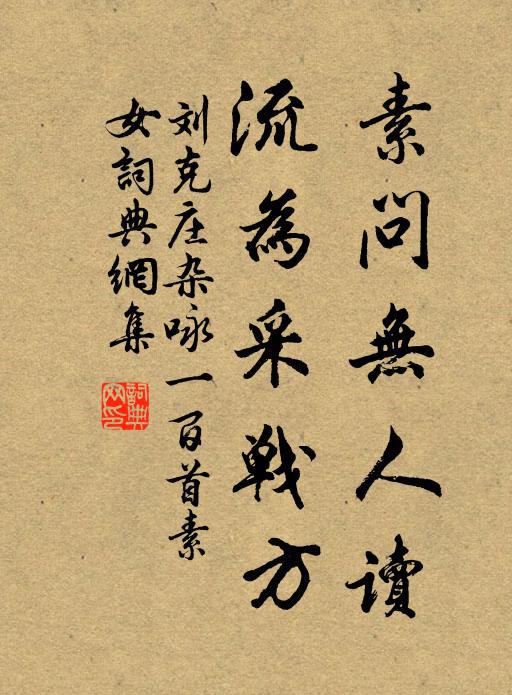 素問無人讀
流為采戰方
刘克庄杂咏一百首素
女詞典網集
詞典網印